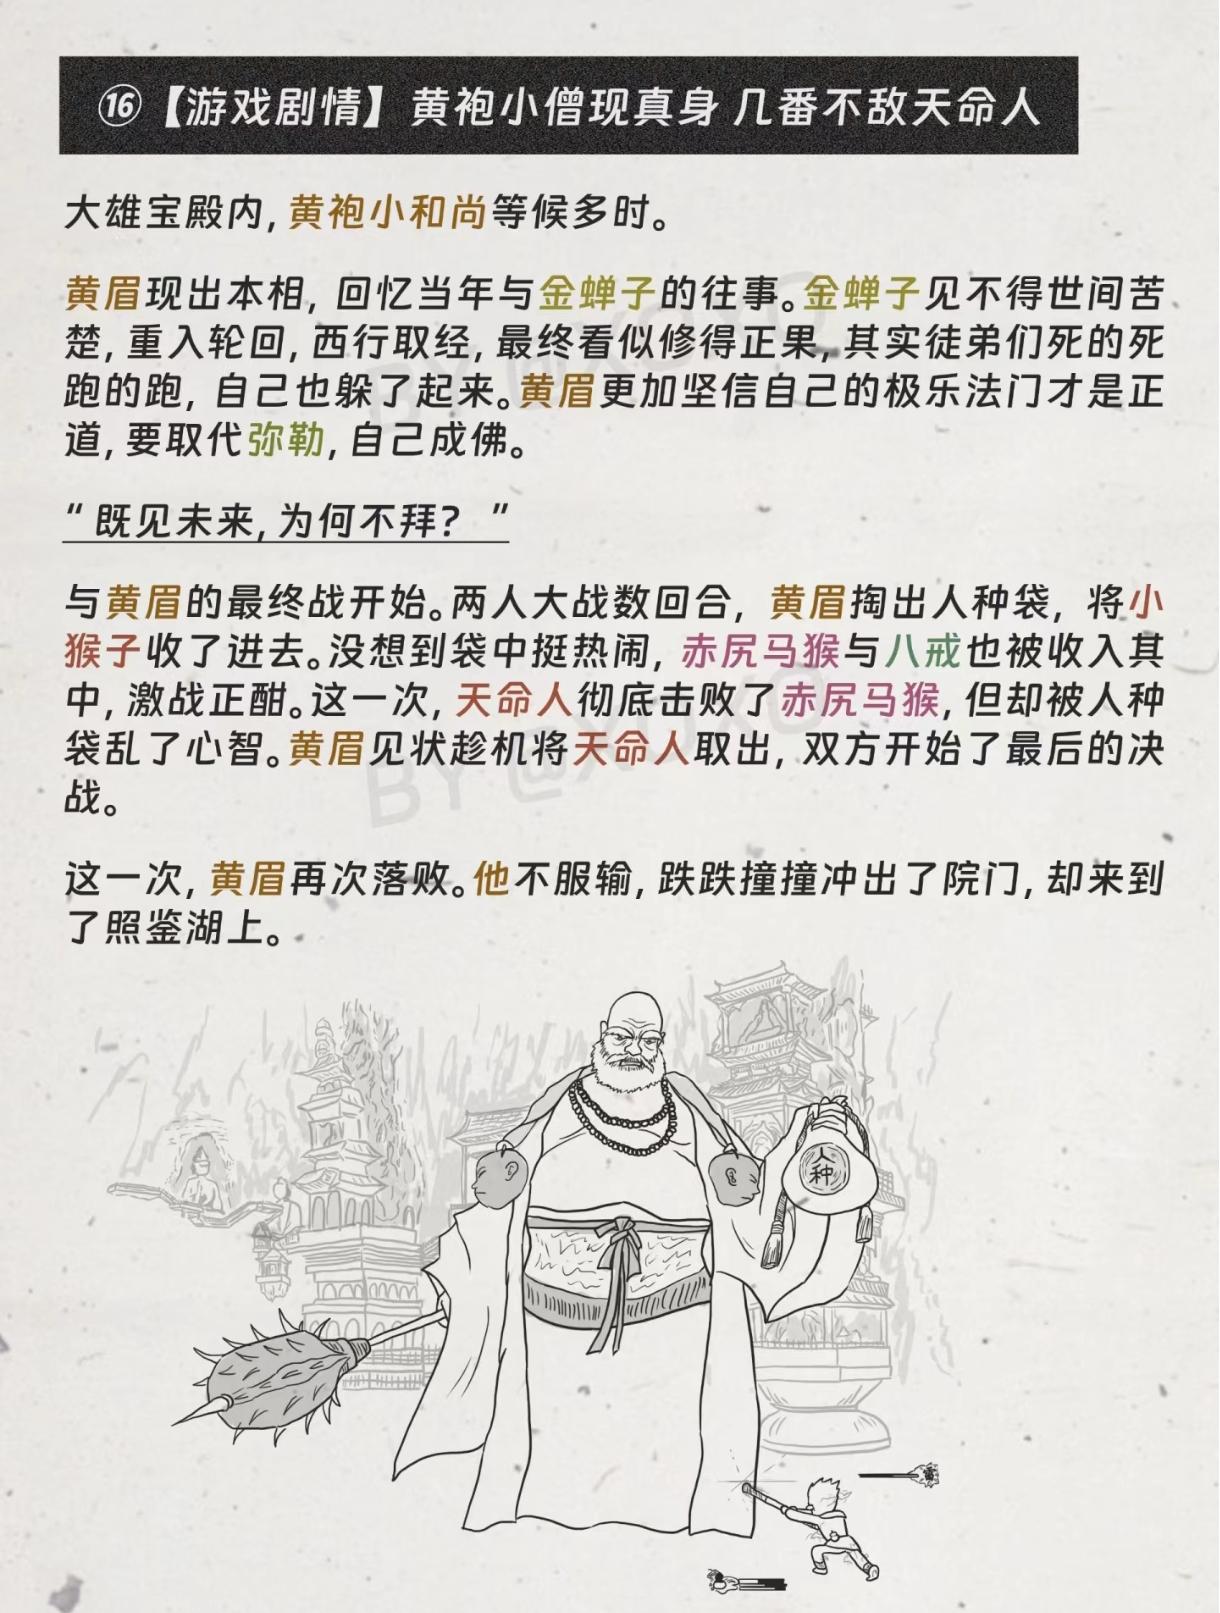 ⑯【游戏剧情】黄袍小僧现真身 几番不敌天命人
大雄宝殿内,黄袍小和尚等候多时。
黄眉现出本相, 回忆当年与金蝉子的往事。金蝉子见不得世间苦
楚,重入轮回,西行取经,最终看似修得正果,其实徒弟们死的死
跑的跑, 自己也躲了起来。黄眉更加坚信自己的极乐法门才是正
道,要取代弥勒,自己成佛。
“既见未来,为何不拜? ”
与黄眉的最终战开始。两人大战数回合, 黄眉掏出人种袋, 将小
猴子收了进去。没想到袋中挺热闹, 赤尻马猴与八戒也被收入其
中,激战正酣。这一次,天命人彻底击败了赤尻马猴,但却被人种
袋乱了心智。黄眉见状趁机将天命人取出, 双方开始了最后的决
战。
这一次,黄眉再次落败。他不服输,跌跌撞撞冲出了院门,却来到
了照鉴湖上。
人
种
BY @XOXO
BY @XOXO